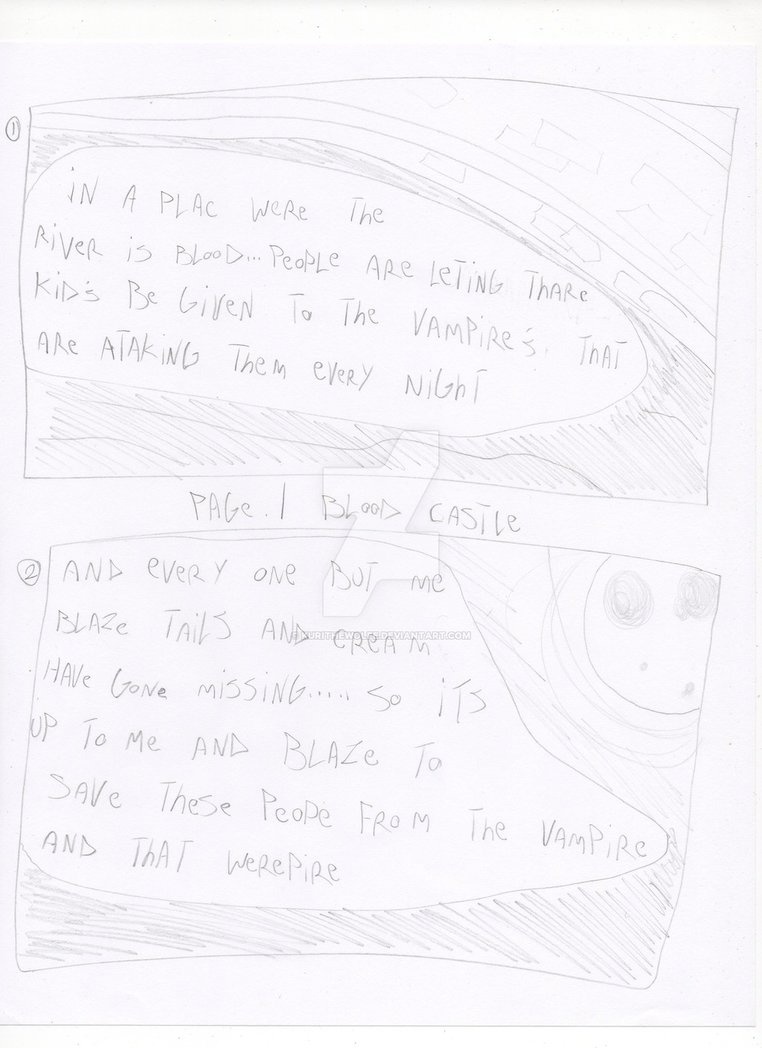 1
iN A PLAC WERE THE
RiVER iS BLOOD... PEOPLE ARE LETiNG THARE
KiD'S BE GiVEN TO THE VAMPiRE'S. THAT
ARE ATAKiNG THEM EVERY NiGHT
PAGE.1 BLOOD CASTLE
2
AND EVERY ONE BUT ME
BLAZE TAILS AND CREAM
HAVE GONE MiSSiNG..... SO iTS
UP TO ME AND BLAZE TO
SAVE THESE PEOPE FROM THE VAMPiRE
AND THAT WEREPiRE